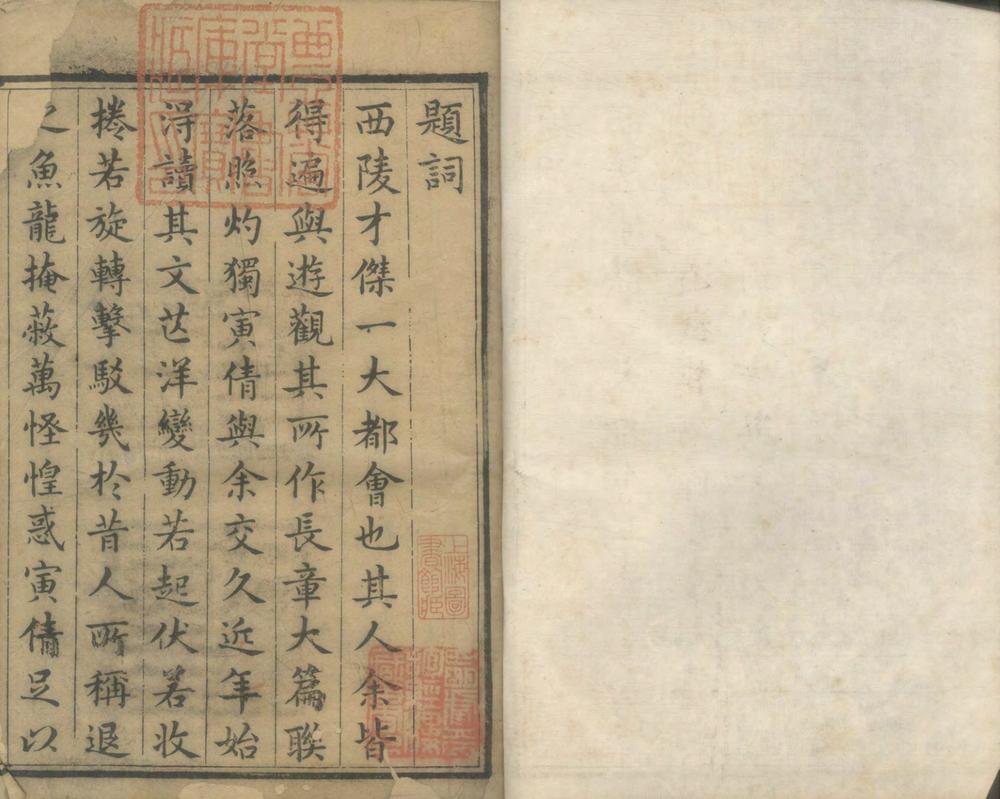 題詞
西陵才傑一大都會也其人余皆
得遍與遊觀其所作長章大篇聯
落照灼獨寅倩與余交久近年始
淂讀其文芒洋變動若起伏若收
捲若旋轉擊駁幾於昔人所稱退
之魚龍掩蔽萬怪惶惑寅倩足以
上海圖
書館藏